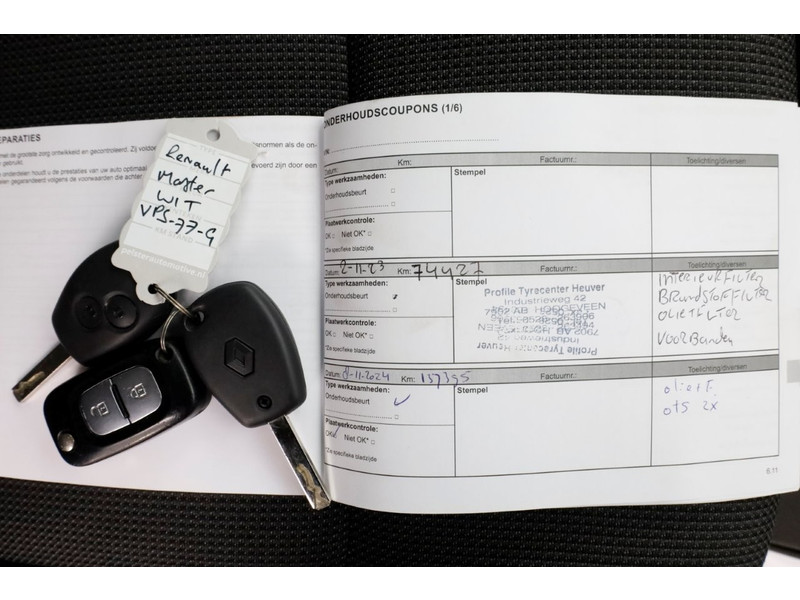 EPARATIES
met de grootste zorg ontwikkeld en gecontroleerd. Zij voldoen
gebruikt.
ssnormen als de on-
onderdelen houdt u de prestaties van uw auto optimaal
evoerd zijn door een
en gegarandeerd volgens de voorwaarden die achter
Renault
Master
WIT
VPS-77-G
KM STAND
peisterautomotive.nl
ONDERHOUDSCOUPONS (1/6)
VIN:
Datum: Km: Factuurnr.: Toelichting/diversen
Type werkzaamheden:
Stempel
Onderhoudsbeurt
Plaatwerkcontrole:
OK Niet OK*
*Zie specifieke bladzijde
Datum: 2-11-23 Km: 74427 Factuurnr.: Toelichting/diversen
Type werkzaamheden:
Stempel
Onderhoudsbeurt
Profile Tyrecenter Heuver
Industrieweg 42
7902 AB HOOGEVEEN
INTERIEURFILTER
BRANDSTOFFILTER
OLIEFILTER
VOORBANDEN
Plaatwerkcontrole:
OK Niet OK*
*Zie specifieke bladzijde
Datum: 01-11-2024 Km: 137395 Factuurnr.: Toelichting/diversen
Type werkzaamheden:
Stempel
Onderhoudsbeurt
Plaatwerkcontrole:
OK Niet OK*
*Zie specifieke bladzijde
2x
6.11